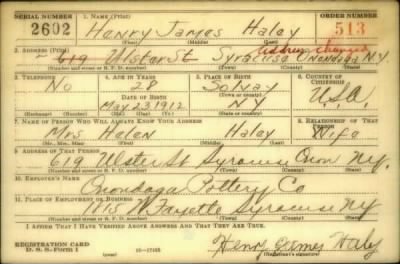 SERIAL NUMBER 1. NAME (Print) ORDER NUMBER
2602 Henry James Haley 513
(First) (Middle) (Last)
2. ADDRESS (Print) Address changed
619 Ulster St Syracuse Onondaga N.Y.
(Number and street or R. F. D. number) (Town) (County) (State)
3. TELEPHONE 4. AGE IN YEARS 5. PLACE OF BIRTH 6. COUNTRY OF CITIZENSHIP
No 28 Solvay
DATE OF BIRTH (Town or county)
May 23 1912 NY U.S.A.
(Exchange) (Number) (Mo.) (Day) (Yr.) (State or country)
7. NAME OF PERSON WHO WILL ALWAYS KNOW YOUR ADDRESS 8. RELATIONSHIP OF THAT PERSON
Mrs Helen Haley Wife
(Mr., Mrs., Miss) (First) (Middle) (Last)
9. ADDRESS OF THAT PERSON
619 Ulster St Syracuse Onon NY.
(Number and street or R. F. D. number) (Town) (County) (State)
10. EMPLOYER'S NAME
Onondaga Pottery Co
11. PLACE OF EMPLOYMENT OR BUSINESS
1815 W Fayette Syracuse NY
(Number and street or R. F. D. number) (Town) (County) (State)
I AFFIRM THAT I HAVE VERIFIED ABOVE ANSWERS AND THAT THEY ARE TRUE.
REGISTRATION CARD
D. S. S. Form 1 Henry James Haley